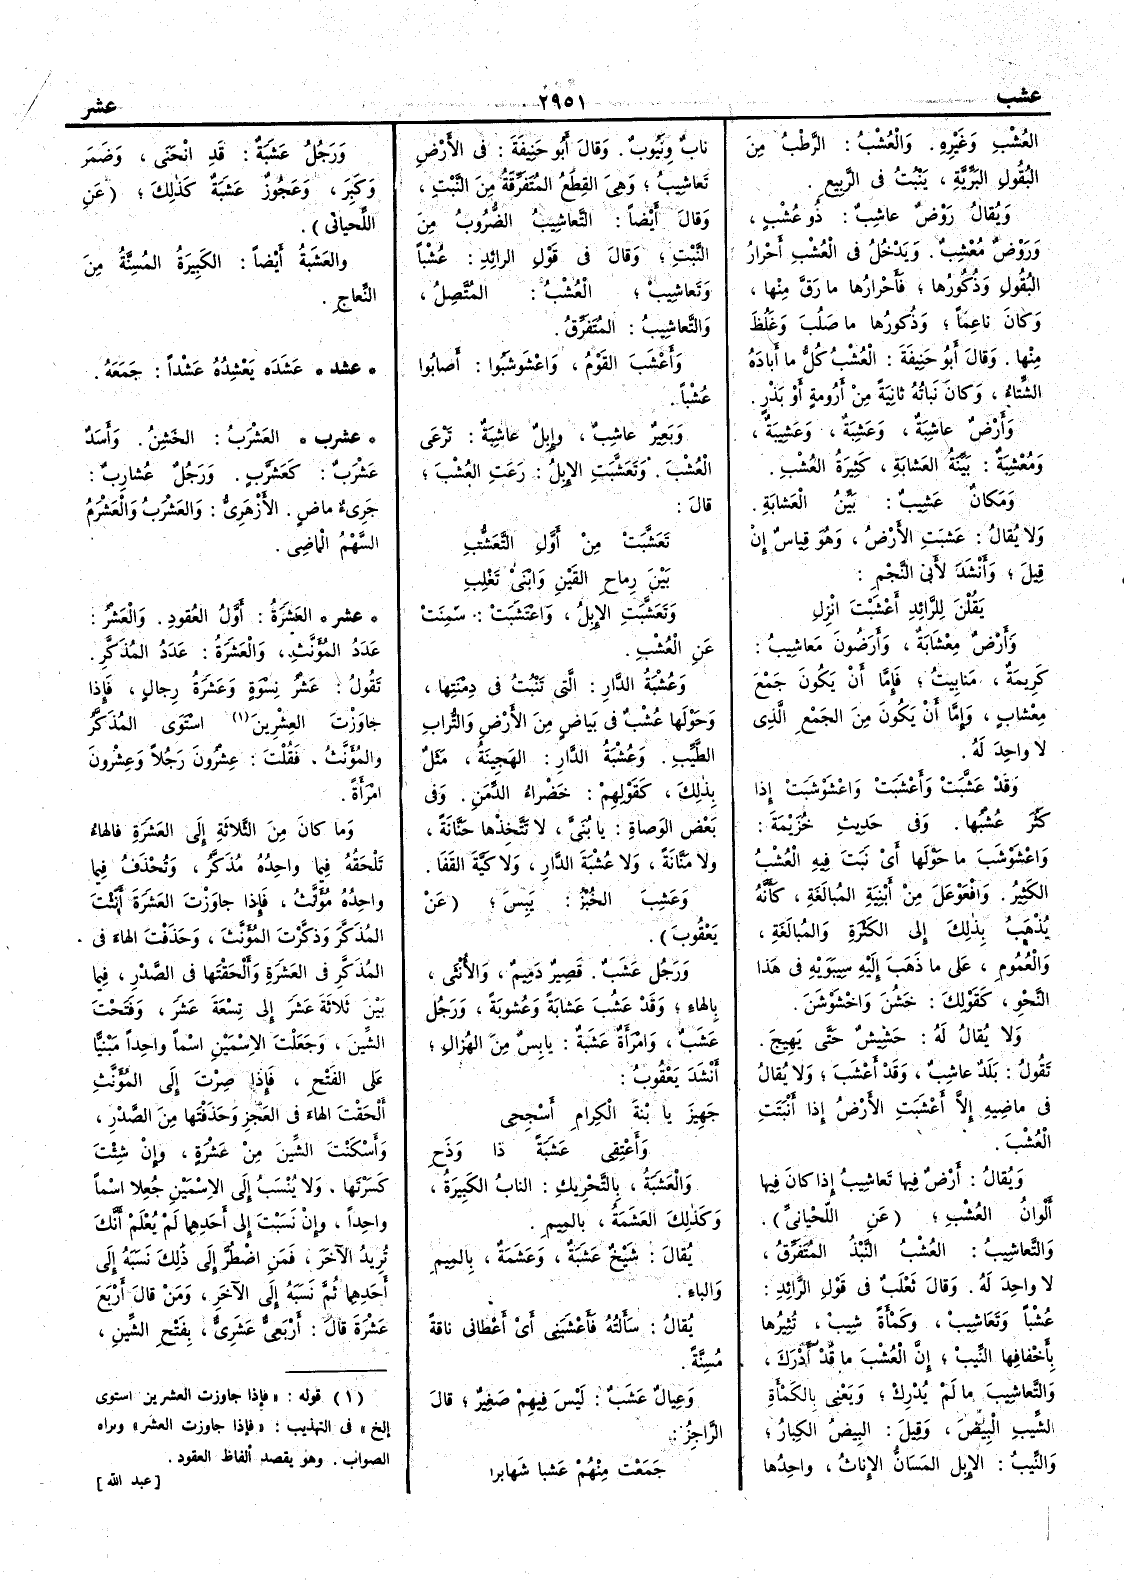 عشب
٢٩٥١
عشر
العُشْبِ وَغَيْرِهِ. وَالْعُشْبُ: الرَّطْبُ مِنَ
البُقُولِ البَرِّيَّةِ، يَنْبُتُ فِى الرَّبِيعِ.
وَيُقالُ رَوْضٌ عاشِبٌ: ذُو عُشْبٍ،
وَرَوْضٌ مُعْشِبٌ. وَيَدْخُلُ فِى الْعُشْبِ أَحْرارُ
البُقُولِ وَذُكُورُها؛ فَأَحْرارُها ما رَقَّ مِنْها،
وَكانَ ناعِماً؛ وَذُكُورُها ما صَلُبَ وَغَلُظَ
مِنْها. وَقالَ أَبُو حَنِيفَةَ: الْعُشْبُ كُلُّ ما أَبادَهُ
الشِّتاءُ، وَكانَ نَباتُهُ ثانِيَةً مِنْ أَرُومَةٍ أَوْ بَذْرٍ.
وَأَرْضٌ عاشِبَةٌ، وَعَشِبَةٌ، وَعَشِيبَةٌ،
وَمُعْشِبَةٌ: بَيِّنَةُ العَشابَةِ، كَثِيرَةُ العُشْبِ.
وَمَكانٌ عَشِيبٌ: بَيِّنُ الْعَشابَةِ.
وَلا يُقالُ: عَشَبَتِ الأَرْضُ، وَهُوَ قِياسٌ إِنْ
قِيلَ؛ وَأَنْشَدَ لأَبِى النَّجْمِ:
يَقُلْنَ لِلرَّائِدِ أَعْشَبْتَ انْزِلِ
وَأَرْضٌ مِعْشابَةٌ، وَأَرَضُونَ مَعاشِيبُ:
كَرِيمَةٌ، مَنابِيتُ؛ فَإِمَّا أَنْ يَكُونَ جَمْعَ
مِعْشابٍ، وَإِمَّا أَنْ يَكُونَ مِنَ الجَمْعِ الَّذِى
لا واحِدَ لَهُ.
وَقَدْ عَشَّبَتْ وَأَعْشَبَتْ وَاعْشَوْشَبَتْ إِذا
كَثُرَ عُشْبُها. وَفِى حَدِيثِ خُزَيْمَةَ:
وَاعْشَوْشَبَ ما حَوْلَها أَىْ نَبَتَ فِيهِ الْعُشْبُ
الكَثِيرُ. وَافْعَوْعَلَ مِنْ أَبْنِيَةِ المُبالَغَةِ، كَأَنَّهُ
يُذْهَبُ بِذٰلِكَ إِلَى الكَثْرَةِ وَالمُبالَغَةِ،
وَالْعُمُومِ، عَلَى ما ذَهَبَ إِلَيْهِ سِيبَوَيْهِ فِى هَذا
النَّحْوِ، كَقَوْلِكَ: خَشُنَ وَاخْشَوْشَنَ.
وَلا يُقالُ لَهُ: حَشِيشٌ حَتَّى يَهِيجَ.
تَقُولُ: بَلَدٌ عاشِبٌ، وَقَدْ أَعْشَبَ؛ وَلا يُقالُ
فِى ماضِيهِ إِلاَّ أَعْشَبَتِ الأَرْضُ إِذا أَنْبَتَتِ
الْعُشْبَ.
وَيُقالُ: أَرْضٌ فِيها تَعاشِيبُ إِذا كانَ فِيها
أَلْوانُ العُشْبِ؛ (عَنِ اللِّحْيانِىِّ).
وَالتَّعاشِيبُ: العُشْبُ النَّبْذُ المُتَفَرِّقُ،
لا واحِدَ لَهُ. وَقالَ ثَعْلَبٌ فِى قَوْلِ الرَّائِدِ:
عُشْباً وَتَعاشِيبْ، وكَمْأَةً شِيبْ، تُثِيرُها
بِأَخْفافِها النِّيبْ؛ إِنَّ الْعُشْبَ ما قَدْ أَدْرَكَ،
وَالتَّعاشِيبَ ما لَمْ يُدْرِكْ؛ وَيَعْنِى بِالكَمْأَةِ
الشِّيبِ الْبِيضَ، وَقِيلَ: البِيضُ الكِبارُ؛
وَالنِّيبُ: الإِبِلُ المَسَانُّ الإِناثُ، واحِدُها
نابٌ ونَيُوبٌ. وَقالَ أَبُو حَنِيفَةَ: فِى الأَرْضِ
تَعاشِيبُ؛ وَهِىَ القِطَعُ المُتَفَرِّقَةُ مِنَ النَّبْتِ،
وَقالَ أَيْضاً: التَّعاشِيبُ الضُّرُوبُ مِنَ
النَّبْتِ؛ وَقالَ فِى قَوْلِ الرائِدِ: عُشْباً
وَتَعاشِيبْ؛ الْعُشْبُ: المُتَّصِلُ،
وَالتَّعاشِيبُ: المُتَفَرِّقُ.
وَأَعْشَبَ القَوْمُ، وَاعْشَوْشَبُوا: أَصابُوا
عُشْباً.
وَبَعِيرٌ عاشِبٌ، وإِبِلٌ عاشِبَةٌ: تَرْعَى
الْعُشْبَ. وَتَعَشَّبَتِ الإِبِلُ: رَعَتِ العُشْبَ؛
قالَ:
تَعَشَّبَتْ مِنْ أَوَّلِ التَّعَشُّبِ
بَيْنَ رِماحِ القَيْنِ وَابْنَىْ تَغْلِبِ
وَتَعَشَّبَتِ الإِبِلُ، وَاعْتَشَبَتْ: سَمِنَتْ
عَنِ الْعُشْبِ.
وَعُشْبَةُ الدَّارِ: الَّتِى تَنْبُتُ فِى دِمْنَتِها،
وَحَوْلَها عُشْبٌ فِى بَياضٍ مِنَ الأَرْضِ وَالتُّرابِ
الطَّيِّبِ. وَعُشْبَةُ الدَّارِ: الهَجِينَةُ، مَثَلٌ
بِذٰلِكَ، كَقَوْلِهِمْ: خَضْراءُ الدِّمَنِ. وَفِى
بَعْضِ الوَصاةِ: يا بُنَىَّ، لا تَتَّخِذْها حَنَّانَةً،
ولا مَنَّانَةً، وَلا عُشْبَةَ الدَّارِ، وَلا كَيَّةَ القَفَا.
وَعَشِبَ الخُبْزُ: يَبِسَ؛ (عَنْ
يَعْقُوبَ).
وَرَجُلٌ عَشَبٌ. قَصِيرٌ دَمِيمٌ، وَالأُنْثَى،
بِالهاءِ؛ وَقَدْ عَشُبَ عَشابَةً وَعُشوبَةً، وَرَجُلٌ
عَشَبٌ، وَامْرَأَةٌ عَشَبَةٌ: يابِسٌ مِنَ الهُزالِ؛
أَنْشَدَ يَعْقُوبُ:
جَهِيزَ يا بْنَةَ الْكِرامِ أَسْجِحِى
وَأَعْتِقِى عَشَبَةً ذا وَذَحِ
وَالْعَشَبَةُ، بِالتَّحْرِيكِ: النابُ الكَبِيرَةُ،
وَكَذٰلِكَ العَشَمَةُ، بالمِيمِ.
يُقالُ: شَيْخٌ عَشَبَةٌ، وَعَشَمَةٌ، بِالمِيمِ
وَالباءِ.
يُقالُ: سَأَلْتُهُ فَأَعْشَبَنِى أَىْ أَعْطانِى ناقَةً
مُسِنَّةً.
وَعِيالٌ عَشَبٌ: لَيْسَ فِيهِمْ صَغِيرٌ؛ قالَ
الرَّاجِزُ:
جَمَعْت مِنْهُمْ عَشَبا شَهابِرا
وَرَجُلٌ عَشَبَةٌ: قَدِ انْحَنَى، وَضَمَرَ
وَكَبِرَ، وَعَجُوزٌ عَشَبَةٌ كَذٰلِكَ؛ (عَنِ
اللِّحْيانِى).
والعَشَبَةُ أَيْضاً: الكَبِيرَةُ المُسِنَّةُ مِنَ
النِّعاجِ.
• عشد • عَشَدَه يَعْشِدُهُ عَشْداً: جَمَعَهُ.
• عشرب • العَشْرَبُ: الخَشِنُ. وَأَسَدٌ
عَشْرَبٌ: كَعَشَرَّبٍ. وَرَجُلٌ عُشارِبٌ:
جَرِىءٌ ماضٍ. الأَزْهَرِىُّ: وَالعَشْرَبُ وَالْعَشْرَمُ
السَّهْمُ الْماضِى.
• عشر • العَشَرَةُ: أَوَّلُ العُقُودِ. وَالْعَشْرُ:
عَدَدُ المُؤَنَّثِ، وَالعَشَرَةُ: عَدَدُ المُذَكَّرِ.
تَقُولُ: عَشْرُ نِسْوَةٍ وَعَشَرَةُ رِجالٍ، فَإِذا
جاوَزْتَ العِشْرِينَ(١) اسْتَوَى المُذَكَّرُ
والمُؤَنَّثُ. فَقُلْتَ: عِشْرُونَ رَجُلاً وَعِشْرُونَ
امْرَأَةً.
وَما كانَ مِنَ الثَّلاثَةِ إِلَى العَشَرَةِ فالهاءُ
تَلْحَقُهُ فِيما واحِدُهُ مُذَكَّرٌ، وَتُحْذَفُ فِيما
واحِدُهُ مُؤَنَّثٌ، فَإِذا جاوَزْتَ العَشَرَةَ أَنَّثْتَ
المُذَكَّرَ وَذَكَّرْتَ المُؤَنَّثَ، وَحَذَفْتَ الهاءَ فِى
المُذَكَّرِ فِى العَشَرَةِ وَأَلْحَقْتَها فِى الصَّدْرِ، فِيما
بَيْنَ ثَلاثَةَ عَشَرَ إِلَى تِسْعَةَ عَشَرَ، وَفَتَحْتَ
الشِّينَ، وَجَعَلْتَ الاِسْمَيْنِ اسْماً واحِداً مَبْنِيًّا
عَلَى الفَتْحِ، فَإِذا صِرْتَ إِلَى المُؤَنَّثِ
أَلْحَقْتَ الهاءَ فِى العَجْزِ وَحَذَفْتَها مِنَ الصَّدْرِ،
وَأَسْكَنْتَ الشِّينَ مِنْ عَشْرَةٍ، وإِنْ شِئْتَ
كَسَرْتَها. وَلا يُنْسَبُ إِلَى الاِسْمَيْنِ جُعِلا اسْماً
واحِداً، وإِنْ نَسَبْتَ إِلَى أَحَدِهِما لَمْ يُعْلَمْ أَنَّكَ
تُرِيدُ الآخَرَ، فَمَنِ اضْطُرَّ إِلَى ذٰلِكَ نَسَبَهُ إِلَى
أَحَدِهِما ثُمَّ نَسَبَهُ إِلَى الآخَرِ، وَمَنْ قالَ أَرْبَعَ
عَشْرَةَ قالَ: أَرْبَعِىٌّ عَشَرِىٌّ، بِفَتْحِ الشِّينِ،
(١) قوله: «فإذا جاوزت العشرين استوى
إلخ» فى التهذيب: «فإذا جاوزت العشر» ونراه
الصواب. وهو يقصد ألفاظ العقود.
[عبد الله]